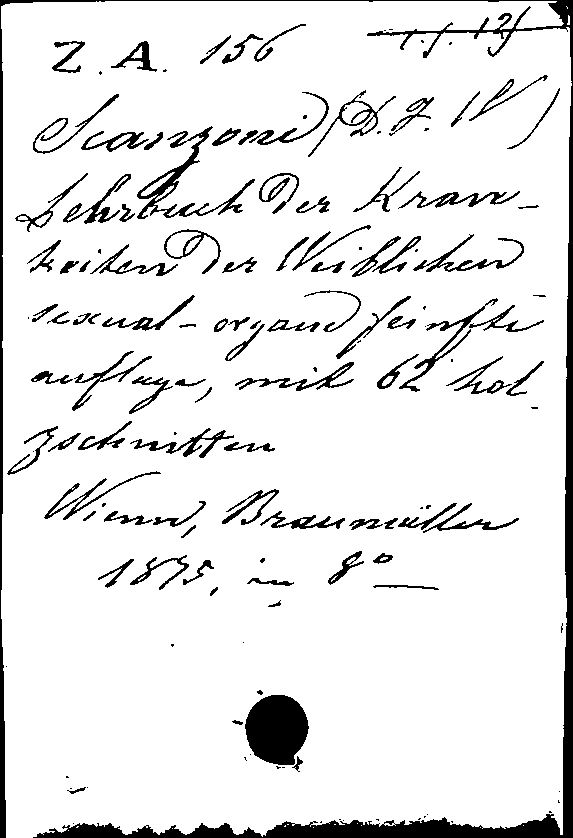 Z. A. 156
Scanzoni (D. F. W)
Lehrbuch der Kran-
keiten der Weiblichen
sexual-organe feinfte
auflage, mit 62 hol-
zschnitten
Wienn, Braumüller
1875, in 8°